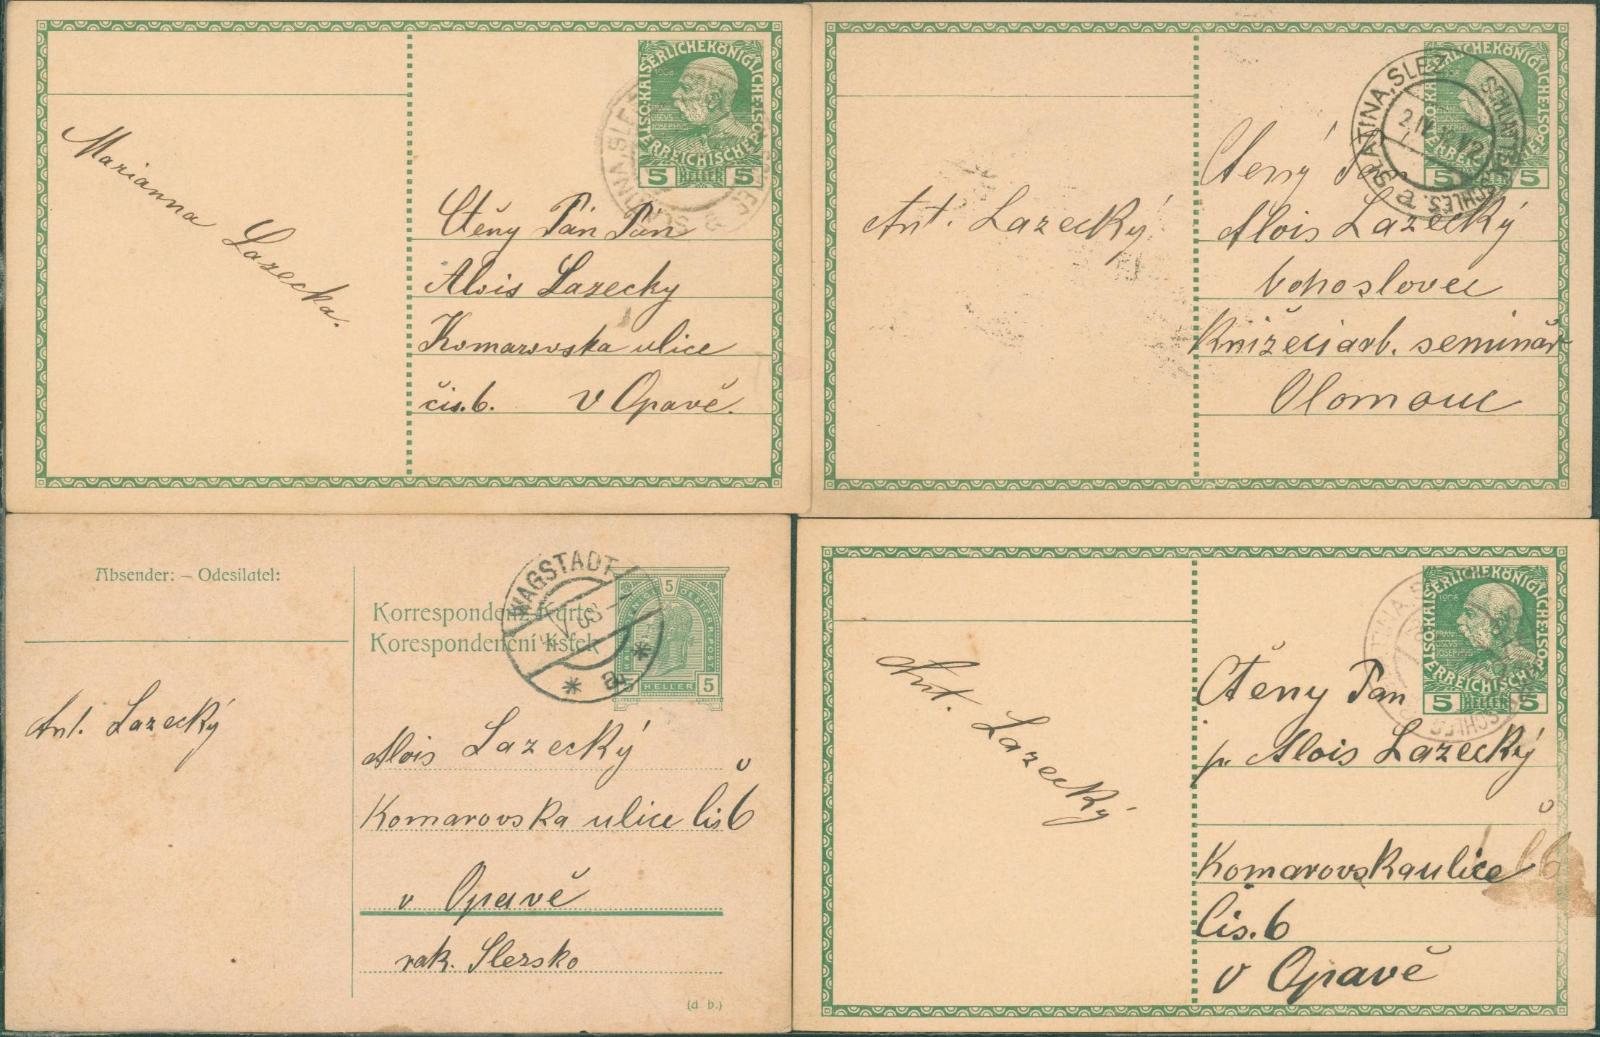 KAISERLICHEKÖNIGLICHE
OSTERREICHISCHE POST
1908
5 HELLER 5
Marianna
Lazecka.
Ctěny Pán Pán
Alois Lazecky
Komarovska ulice
čis. 6. v Opavě.
KAISERLICHEKÖNIGLICHE
5 5
SLATINA, SLEZ
SCHLATTEN, SCHLES.
2 IV
a
Ant. Lazecký
Cteny Pan
Alois Lazecký
bohoslovec
Knižeciarb. seminář
Olomouc
Absender: – Odesilatel:
Korrespondenz-Karte
Korespondenční lístek
WAGSTADT
V 08
* a *
5
HELLER 5
Ant. Lazecký
Alois Lazecký
Komarovska ulice čis 6
v Opavě
rak. Slezsko
(d b.)
KAISERLICHEKÖNIGLICHE
1908
5 HELLER 5
SCHLES
Ant. Lazecký
Ctěny Pan
p. Alois Lazecký
Komarovskaulice
čis. 6
v Opavě